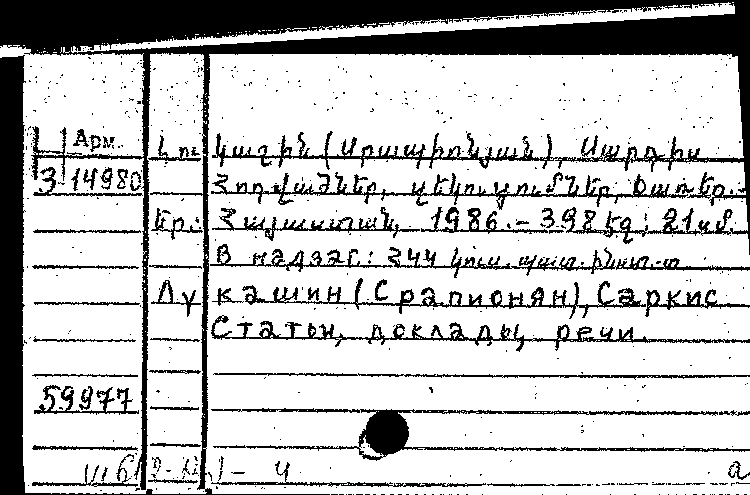 Арм.
3-14980
Լու կաշին (Սրապիոնյան), Սարգիս
Հոդվածներ, զեկուցումներ, ճառեր.-
Եր.: Հայաստան, 1986.- 398 էջ; 21 սմ.
В надзаг.: ՀԿԿ կուս. պատ. ինստ-տ
Лу кашин (Срапионян), Саркис
Статьи, доклады, речи.
59977
ч а